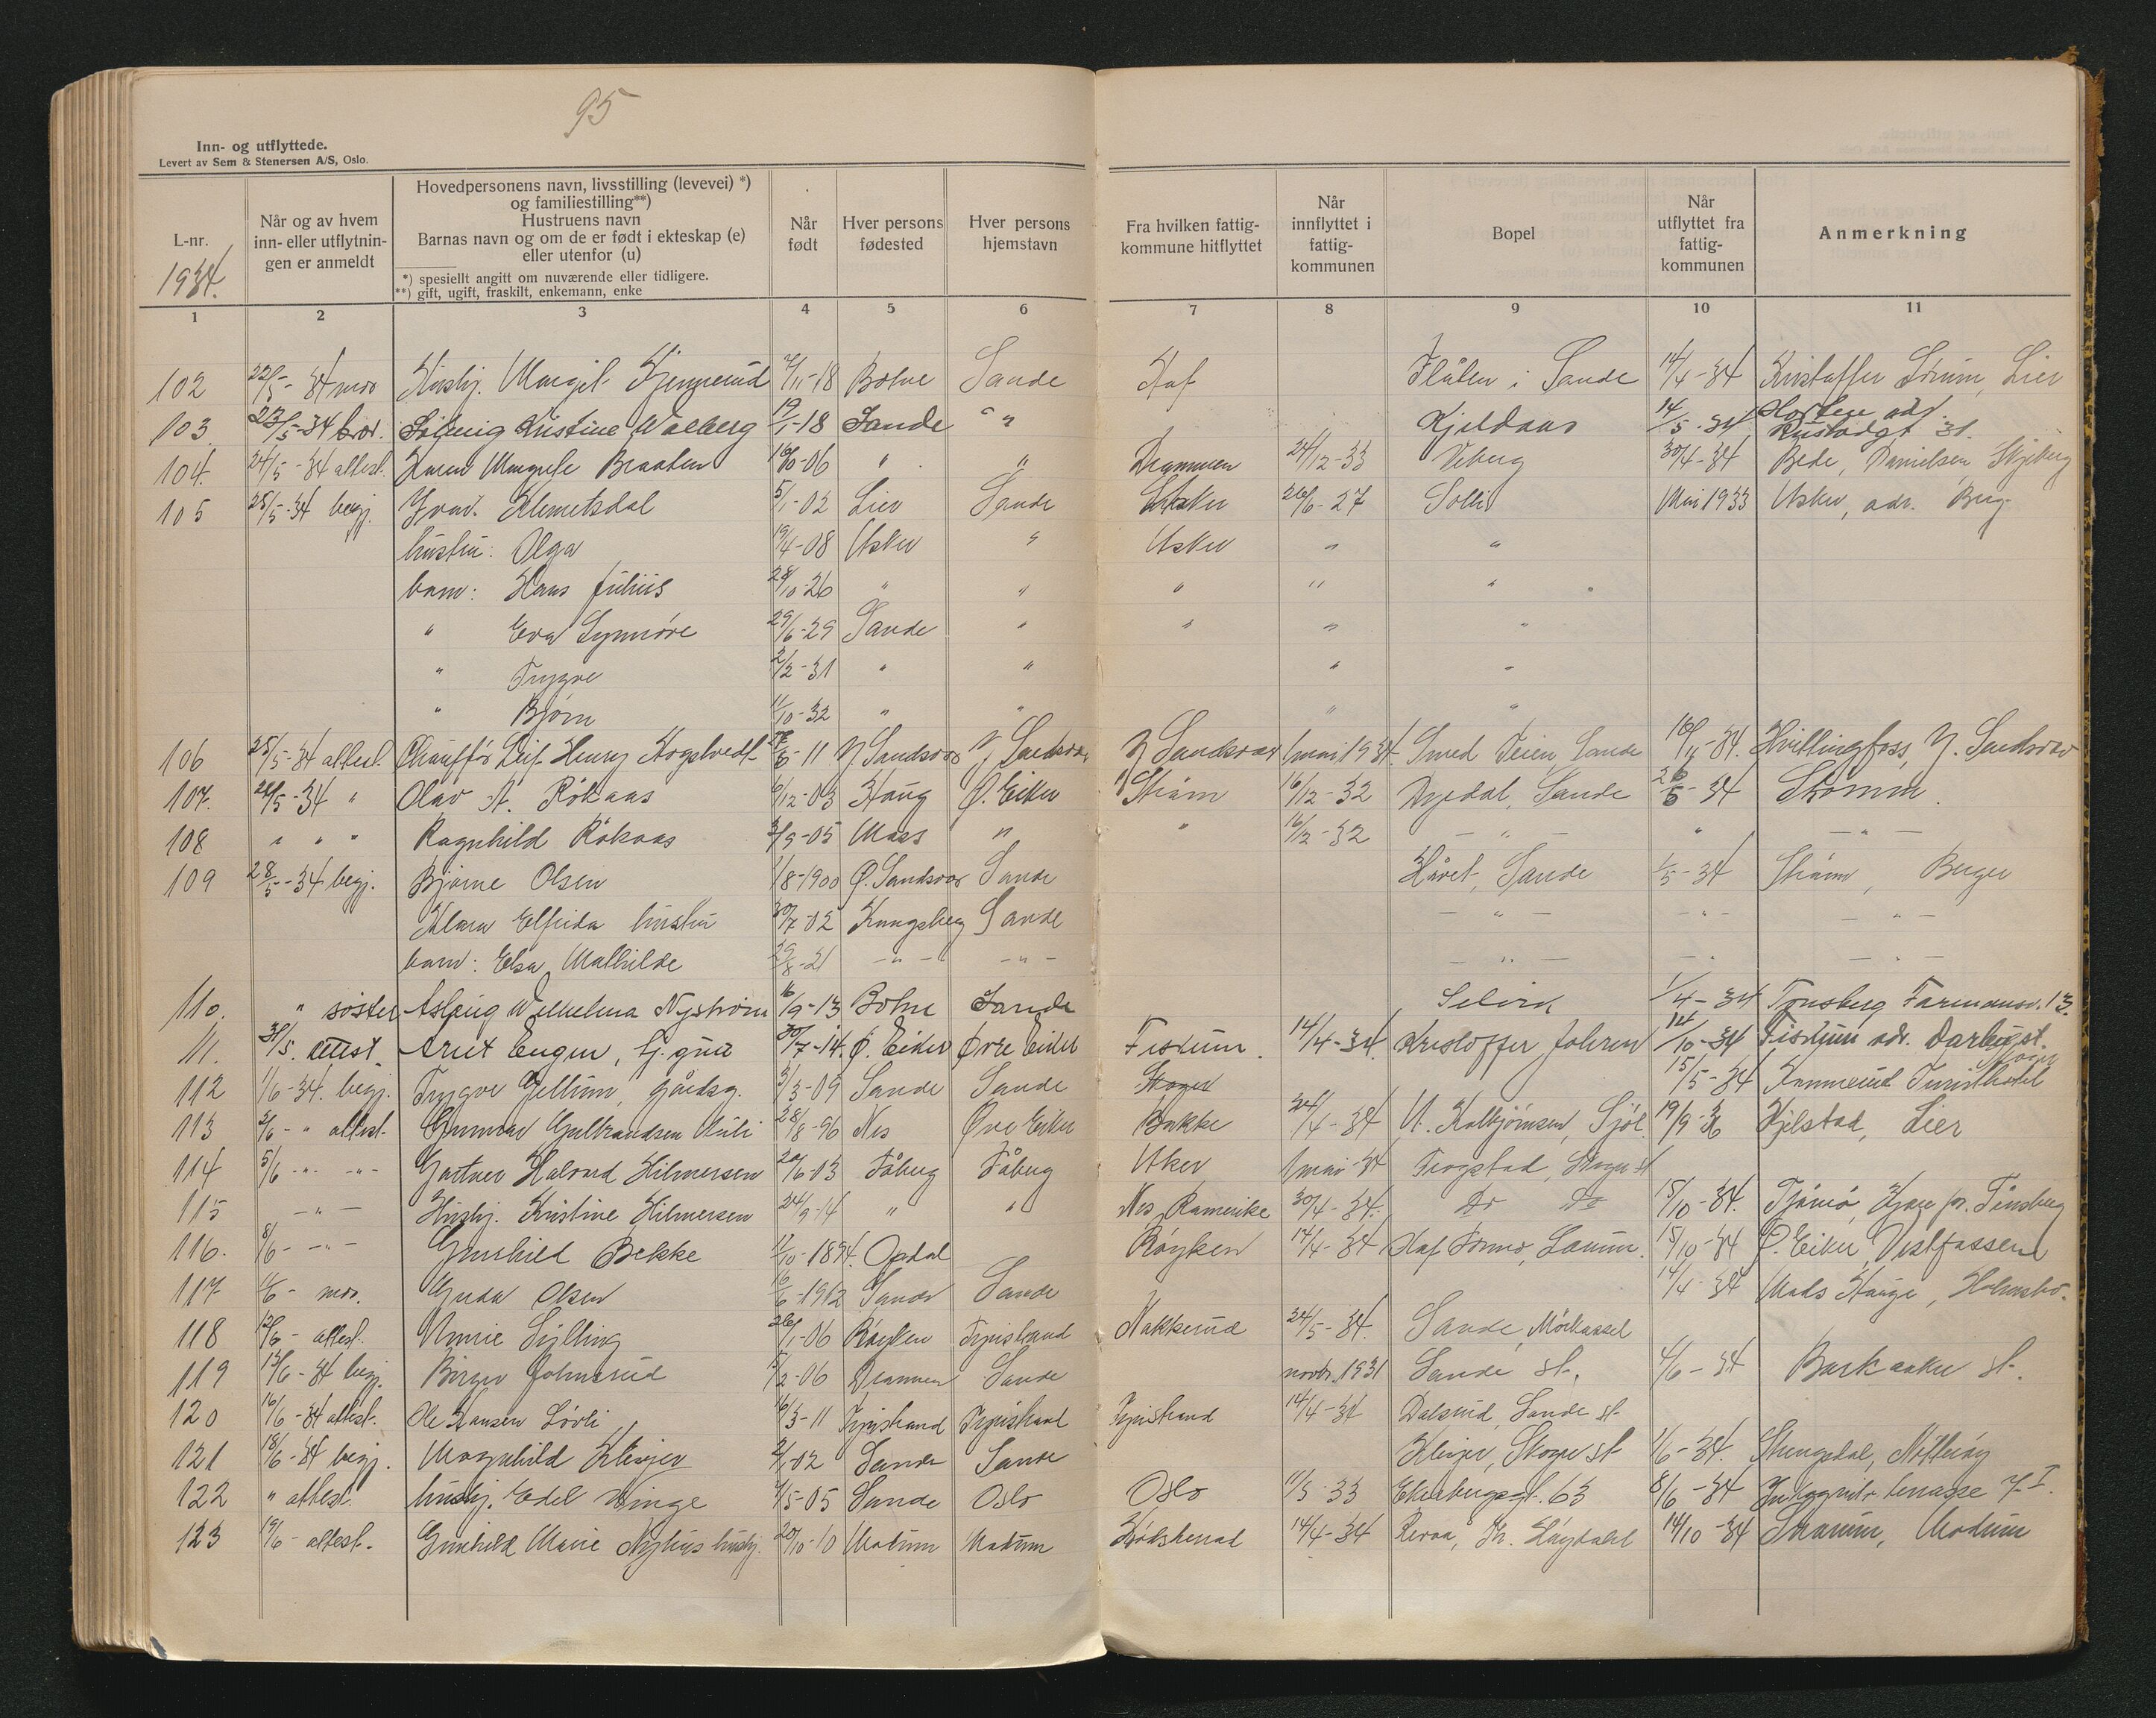 95
Inn- og utflyttede.
Levert av Sem & Stenersen A/S, Oslo.
L-nr.
1934.
Når og av hvem
inn- eller utflytnin-
gen er anmeldt
Hovedpersonens navn, livsstilling (levevei) *)
og familiestilling**)
Hustruens navn
Barnas navn og om de er født i ekteskap (e)
eller utenfor (u)
*) spesiellt angitt om nuværende eller tidligere.
**) gift, ugift, fraskilt, enkemann, enke
Når
født
Hver persons
fødested
Hver persons
hjemstavn
Fra hvilken fattig-
kommune hitflyttet
Når
innflyttet i
fattig-
kommunen
Bopel
Når
utflyttet fra
fattig-
kommunen
Anmerkning
1 2 3 4 5 6 7 8 9 10 11
102 22/5-34 mor Hushj. Margit 7/11-18 Botne Sande i Sande 14/4-34 Kristoffer Lier
103. 23/5-34 bror. Solveig Kristine Walberg 19/1-18 Sande " " Kjeldaas 14/5-34 Horten adr. Rustadgt 31.
104. 24/5-34 attest. Karen Margrete Braaten 16/10-06 " " Drammen 24/12-33 Viberg 30/4-34 Danielsen,
105 25/5-34 begj. Ivar Klemetsdal 5/1-02 Lier Sande 26/6-27 Solli Mai 1933 Asker, adr. Berg
hustru: Olga 19/4-08 Asker " Asker " "
barn: Hans Julius 28/10-26 " " " " "
" Eva Synnöve 29/6-29 Sande " " " "
" Trygve 2/2-31 " " " "
" Bjørn 11/10-32 " " " "
106 25/5-34 attest. Chauffør Leif Henry -11 Y Sandsvær Y Sandsvær Y Sandsvær 1 mai 1934. Smed Teien, Sande -34. Hvittingfoss, Y. Sandsvær
107. 26/5-34 " Olav A. Rökaas 6/12-03 Haug Ø. Eiker Strøm 16/12-32 Dyedal, Sande -34 Strømm.
108 " " " Ragnhild Rökaas 3/9-05 Moss " " 16/12-32 - " - " - " -
109 28/5-34 begj. Bjarne Olsen 1/8-1900 Ø. Sandsvær Sande Sande 1/5-34 Strømm, Berger
Klara Elfrida hustru 30/7-02 Kongsberg Sande - " - - " - - " -
barn: Elsa Mathilde 29/8-21 - " - - " - - " - - " - - " -
110. " søster Aslaug Wilhelma Nystrøm 16/9-13 Botne Sande Selvik 1/4-34 Tønsberg Farmannsv. 13.
111. 31/5. attest. Arnt Engen, 30/7-14. Ø. Eiker Øvre Eiker Fiskum. 14/4-34. Kristoffer Johren 14/10-34 Fiskum adr. Darbu st.
112 1/6-34. begj. Trygve Jellum, gårdsg. 3/3-09 Sande Sande Skoger 15/5-34 Konnerud Turisthotel
113 2/6-" attest. Gunnar Gulbrandsen 28/8-96 Nes Øvre Eiker Bakke 24/4-34 A. Kolbjørnsen, 19/9-36 Kjelstad, Lier
114 5/6-"- -"- Gartner Halvard Hilmersen 20/6-03 Fåberg Fåberg Aker 1 mai-34 Frogstad, Skoger st
115 - " - Hushj. Kristine Hilmersen 24/9-14 " " Nes, Romerike 30/4-34. Do Do 15/10-34. Tjømø, pr. Tönsberg
116. 8/6- -"- Gunhild Bekke 11/10-1894. Opdal Røyken 14/4-34 15/10-34 Ø. Eiker, Vestfossen
117 11/6- mor. Gerda Olsen 16/6-1912 Sande Sande 14/4-34 Mads Hauge, Holmsbo.
118 12/6- attest. Annie Sylling 26/1-06 Røyken Tyristrand Nakkerud 24/5-34. Sande, Mörkassel
119 13/6-34 begj. Birger Johnsrud 5/2-06 Drammen Sande novbr. 1931 Sande st. 4/6-34 Barkaaker st.
120 16/6-34 attest. Ole Hansen Lövli 16/3-11 Tyristrand Tyristrand Tyristrand 14/4-34 Dalsrud, Sande st
121 18/6-34 begj. Magnhild Klevjer 2/1-02 Sande Sande Klevjer, Skoger st 1/6-34. Nötterøy
122 " attest. hushj. Edel Winge 4/5-05 Sande Oslo Oslo 11/3-33 Ekebergsgt. 63 8/6-34 terrasse 7 I.
123 19/6- attest. Gunhild Marie Nyhus hushj. 20/10-10 Modum Modum Krødsherad 14/4-34 Revaa, 14/10-34 Snarum, Modum